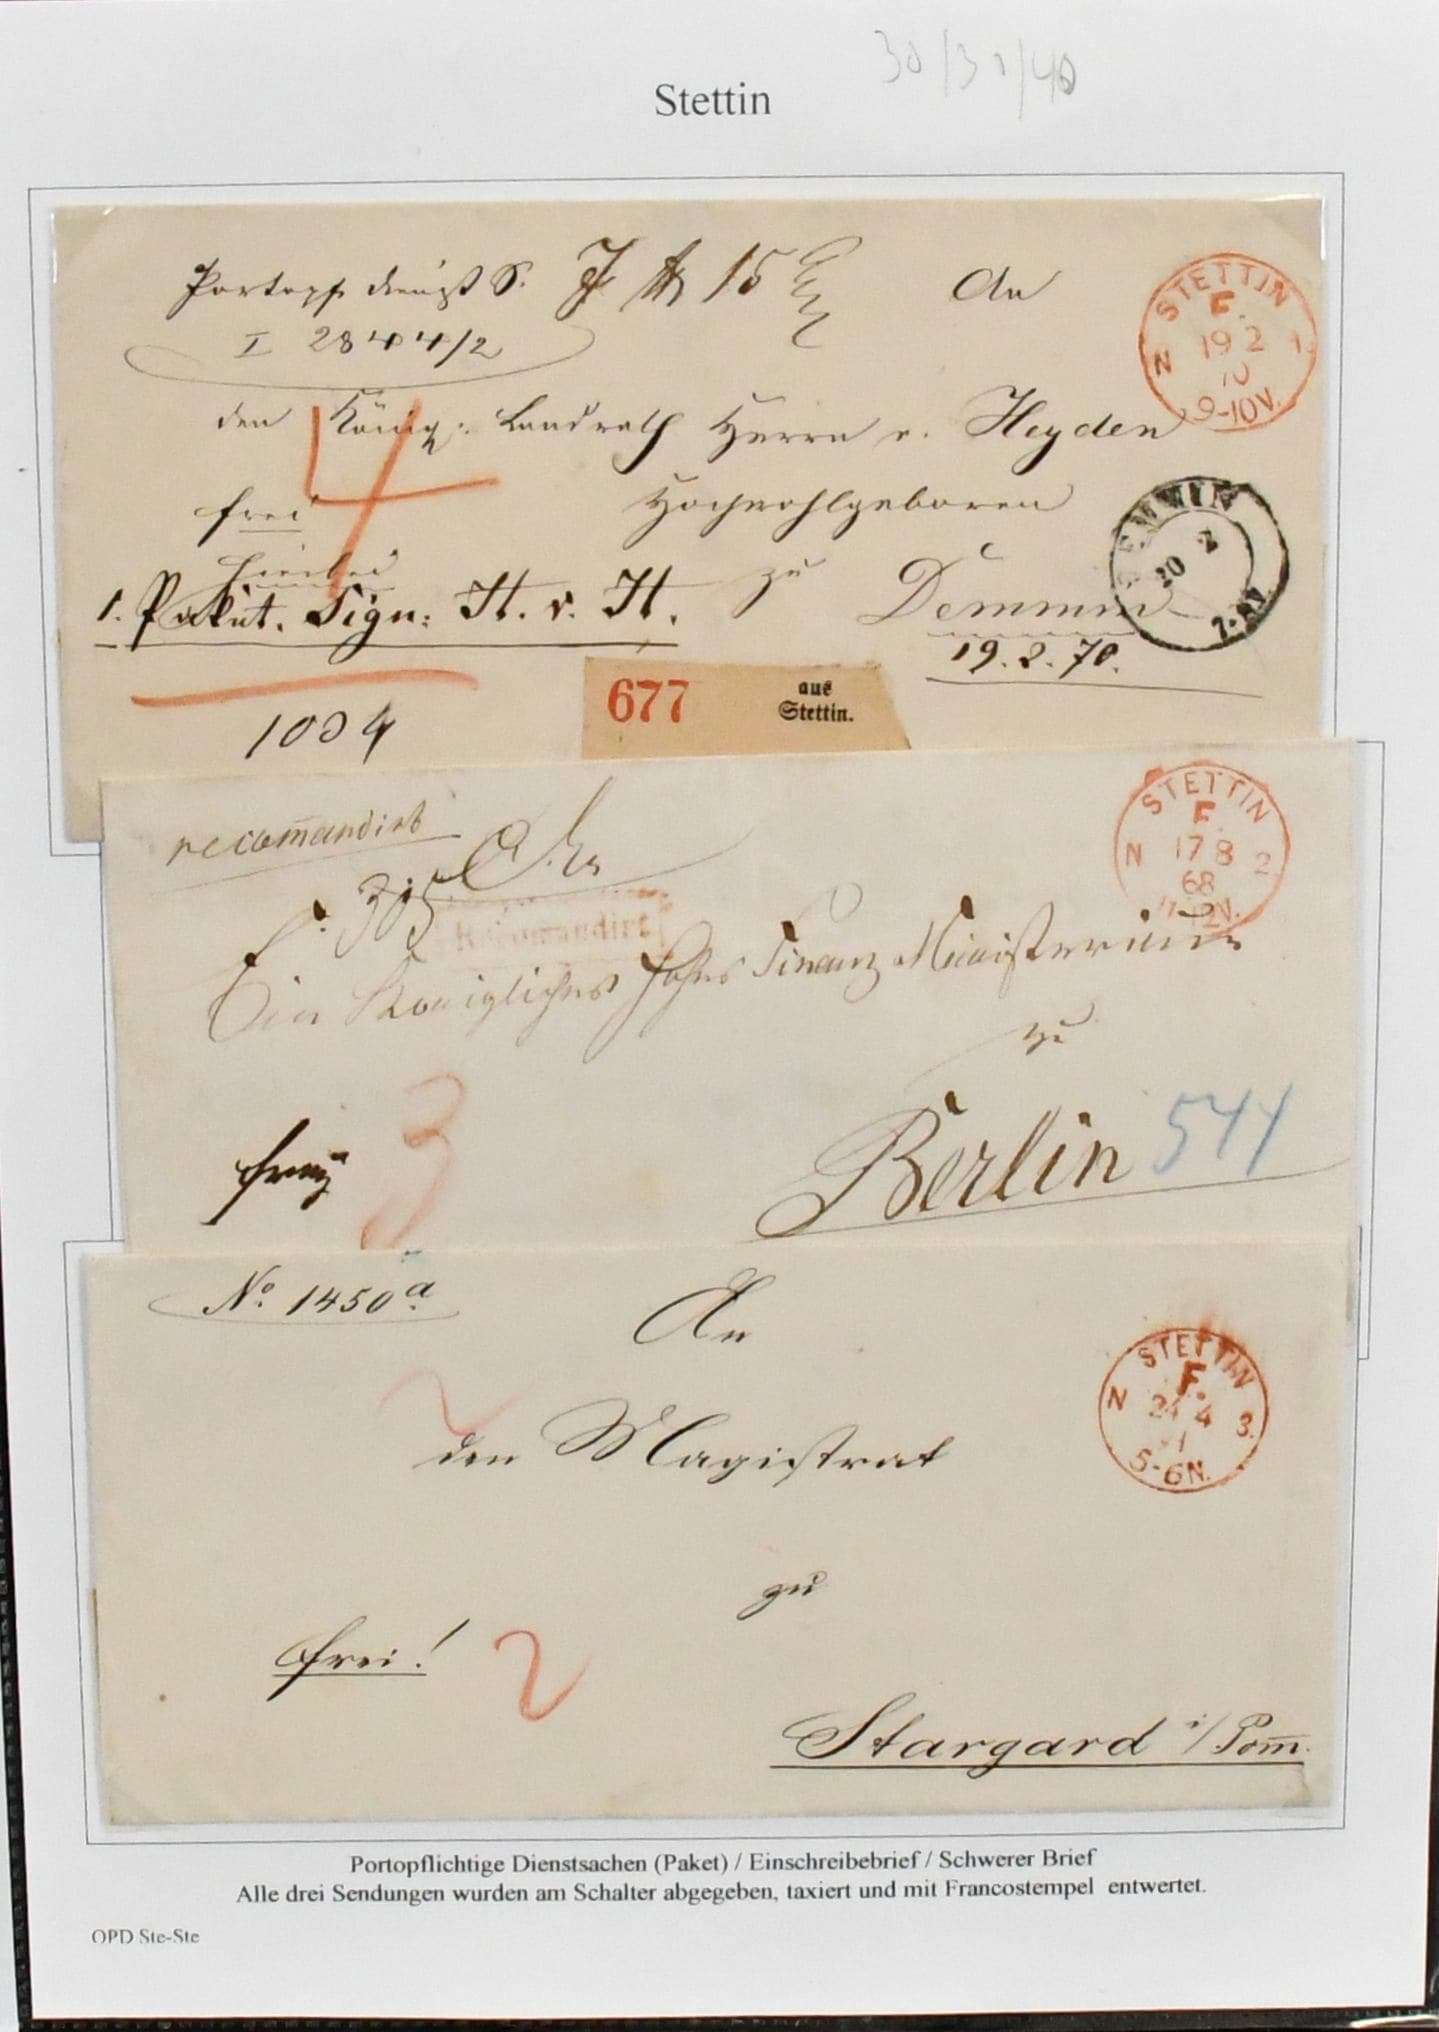 Stettin
30/31/40
Portopf. Dienst S.
15
An
I 2844/2
STETTIN
F.
19 2
70
N 1.
9-10V.
den Königl. Landrath Herrn v. Heyden
4
frei
Hochwohlgeboren
hierbei
zu Demmin
1. Paket. Sign: H. v. H.
DEMMIN
20 2
7-8V.
19.2.70.
1004
677 aus
Stettin.
recomandirt
305
Recomandirt
STETTIN
F.
N 17 8 2.
68
Ein Königliches Hohes Finanz Ministerium
zu
Berlin 544
3
No. 1450a
An
STETTIN
F.
N 24 4 3.
71
5-6N.
2
den Magistrat
zu
frei! 2
Stargard i/Pom.
Portopflichtige Dienstsachen (Paket) / Einschreibebrief / Schwerer Brief
Alle drei Sendungen wurden am Schalter abgegeben, taxiert und mit Francostempel entwertet.
OPD Ste-Ste